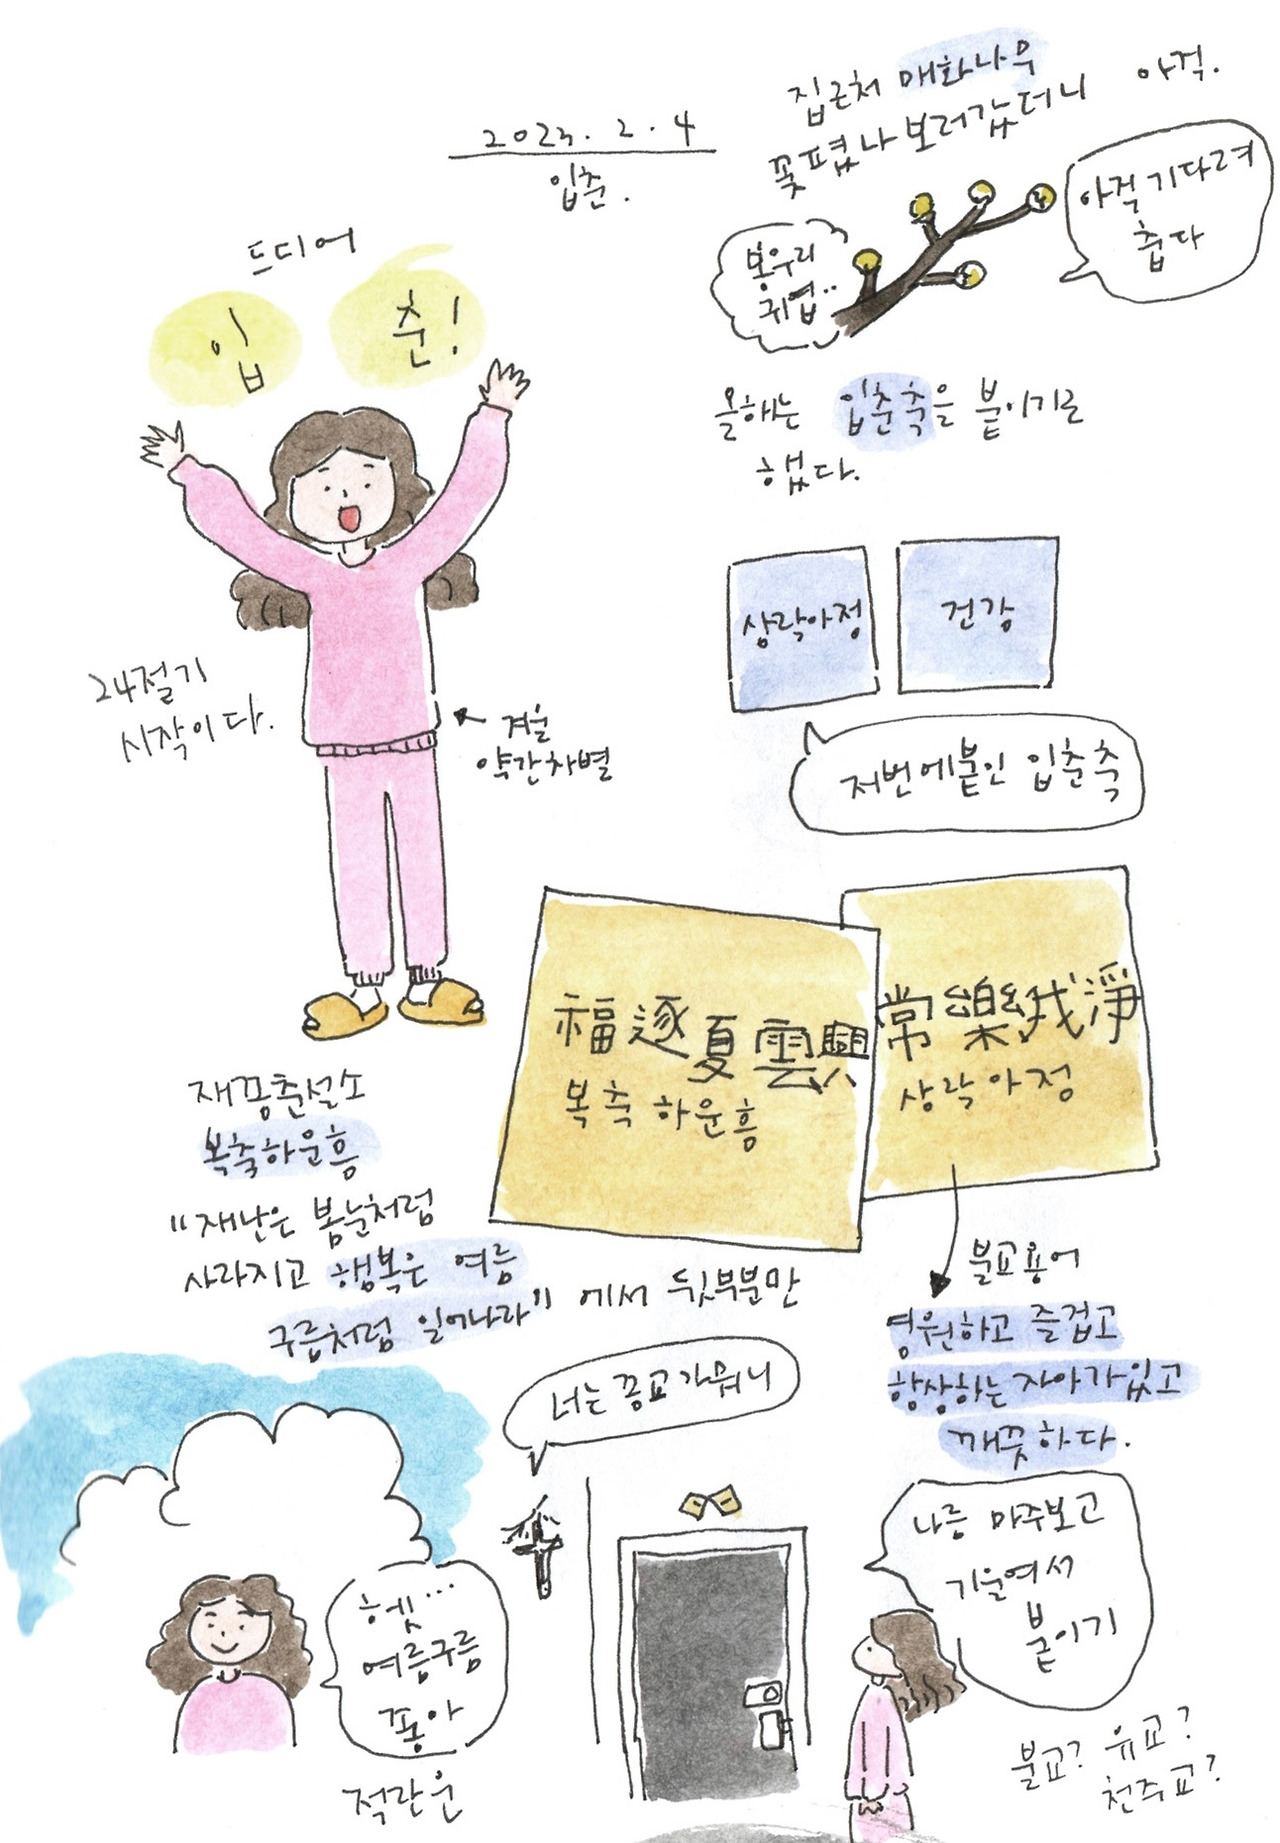 2023. 2. 4
입춘.
집근처 매화나무
꽃폈나 보러갔더니 아직.
봉우리
귀엽..
아직 기다려
춥다
드디어
입 춘!
24절기
시작이다.
겨울
약간차별
올해는 입춘축을 붙이기로
했다.
상락아정
건강
저번에붙인 입춘축
福逐夏雲興
복축 하운흥
常樂我淨
상락아정
재종춘설소
복축하운흥
"재난은 봄눈처럼
사라지고 행복은 여름
구름처럼 일어나라" 에서 뒷부분만
불교용어
영원하고 즐겁고
항상하는 자아가있고
깨끗하다.
헷...
여름구름
좋아
적란운
너는 종교가뭐니
나름 마주보고
기울여서
붙이기
불교? 유교?
천주교?